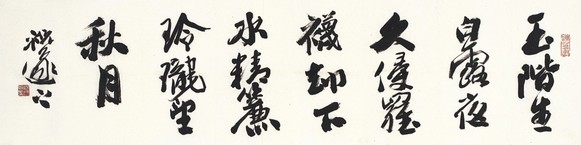 玉階生
白露夜
久侵羅
襪却下
水精簾
玲瓏望
秋月
祝遂之